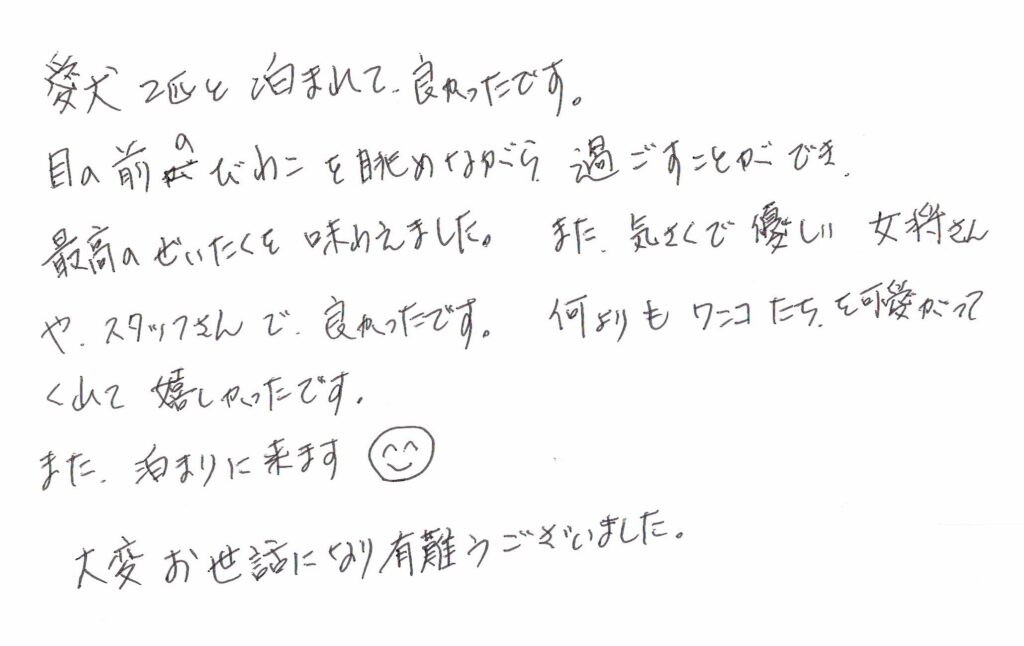 愛犬2匹と泊まれて、良かったです。
目の前のびわこを眺めながら、過ごすことができ、
最高のぜいたくを味わえました。また、気さくで優しい女将さん
や、スタッフさんで、良かったです。何よりもワンコたち、を可愛がって
くれて嬉しかったです。
また、泊まりに来ます
大変お世話になり有難うございました。